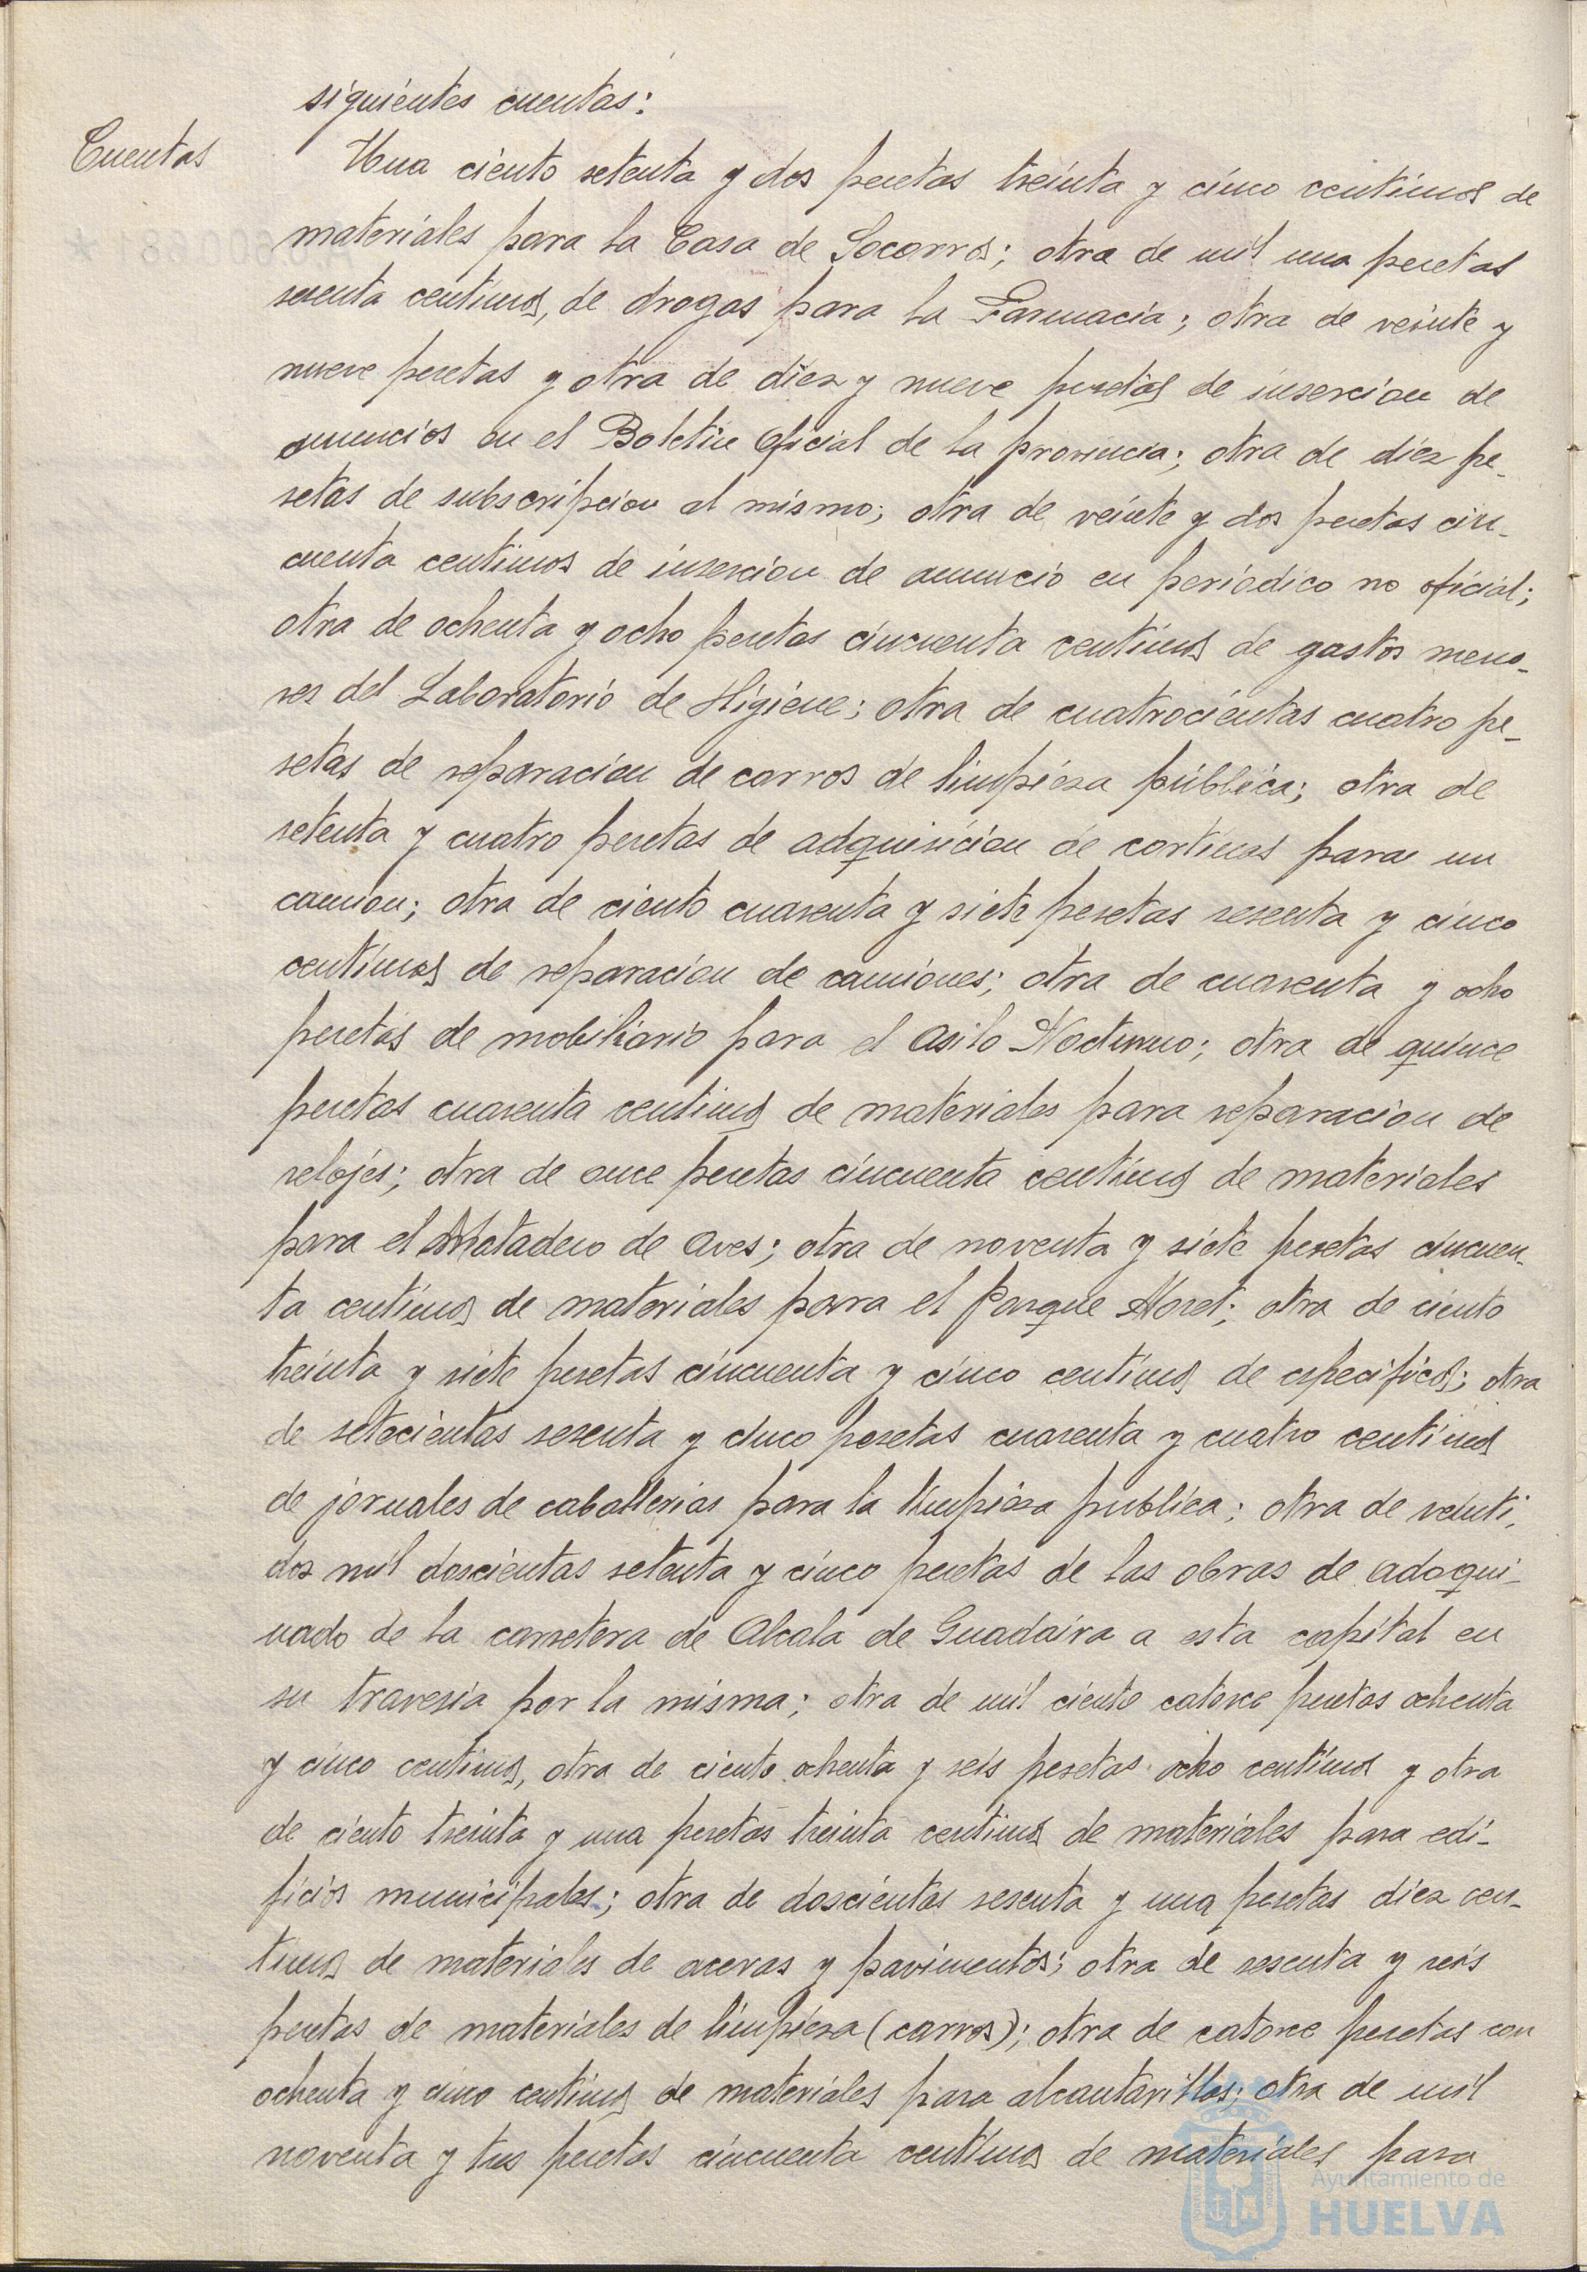 siguientes cuentas:
Cuentas
Una ciento setenta y dos pesetas treinta y cinco centimos de
materiales para la Casa de Socorro; otra de mil una pesetas
sesenta centimos, de drogas para la Farmacia; otra de veinte y
nueve pesetas y otra de diez y nueve pesetas de insercion de
anuncios en el Boletin Oficial de la provincia; otra de diez pe-
setas de subscripcion al mismo; otra de veinte y dos pesetas cin-
cuenta centimos de insercion de anuncio en periodico no oficial;
otra de ochenta y ocho pesetas cincuenta centimos de gastos meno-
res del Laboratorio de Higiene; otra de cuatrocientas cuatro pe-
setas de reparacion de carros de limpieza pública; otra de
setenta y cuatro pesetas de adquisicion de cortinas para un
camion; otra de ciento cuarenta y siete pesetas sesenta y cinco
centimos de reparacion de camiones; otra de cuarenta y ocho
pesetas de mobiliario para el Asilo Nocturno; otra de quince
pesetas cuarenta centimos de materiales para reparacion de
relojes; otra de once pesetas cincuenta centimos de materiales
para el Matadero de Aves; otra de noventa y siete pesetas cincuen-
ta centimos de materiales para el Parque Moret; otra de ciento
treinta y siete pesetas cincuenta y cinco centimos de especificos; otra
de setecientas sesenta y cinco pesetas cuarenta y cuatro centimos
de jornales de caballerias para la limpieza publica; otra de veinti-
dos mil doscientas setenta y cinco pesetas de las obras de adoqui-
nado de la carretera de Alcala de Guadaira a esta capital en
su travesia por la misma; otra de mil ciento catorce pesetas ochenta
y cinco centimos, otra de ciento ochenta y seis pesetas ocho centimos y otra
de ciento treinta y una pesetas treinta centimos de materiales para edi-
ficios municipales; otra de doscientas sesenta y una pesetas diez cen-
timos de materiales de aceras y pavimentos; otra de sesenta y seis
pesetas de materiales de limpieza (carros); otra de catorce pesetas con
ochenta y cinco centimos de materiales para alcantarillas; otra de mil
noventa y tres pesetas cincuenta centimos de materiales para
Ayuntamiento de
HUELVA